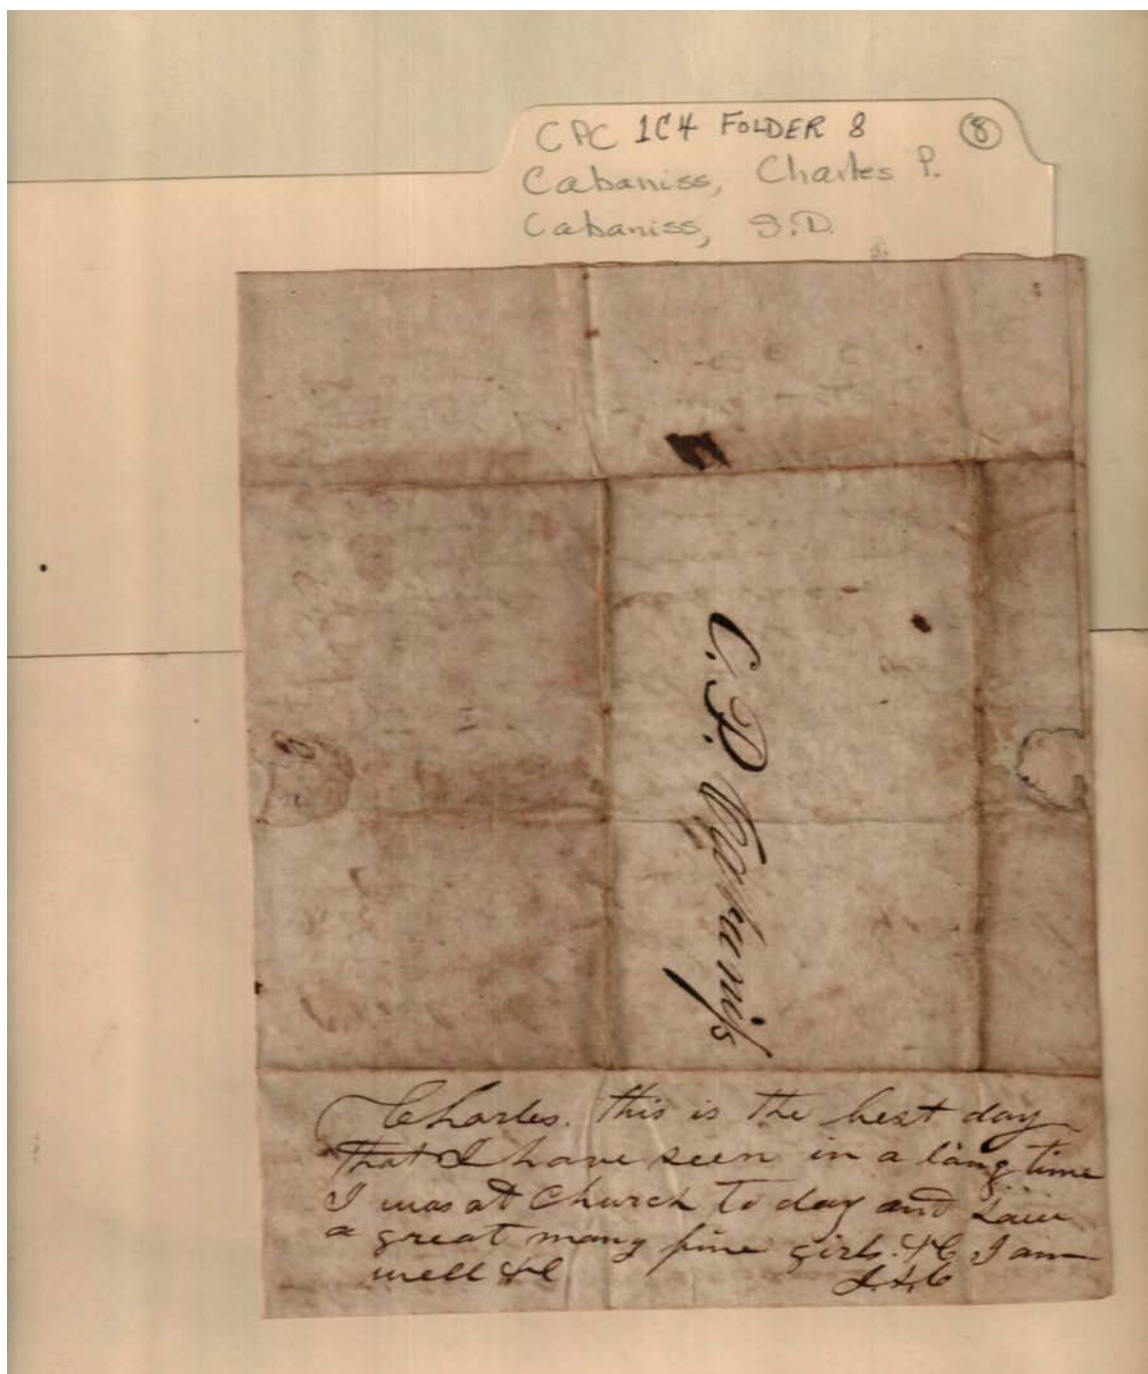 CPC 1C4 FOLDER 8 8
Cabaniss, Charles P.
Cabaniss, S.D.
C. P. Cabaniss
Charles. this is the best day
that I have seen in a long time
I was at Church to day and saw
a great many fine girls. &C I am
well &C